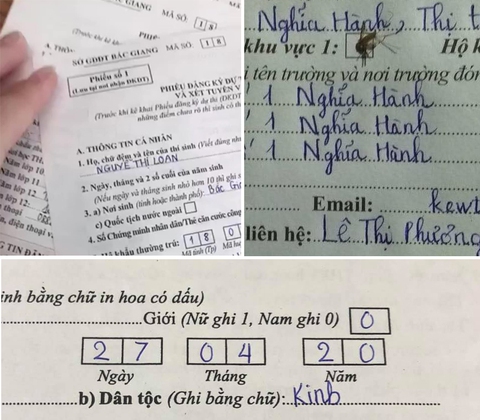 GIANG MÃ SỐ: 1 8
SỞ GDĐT BẮC GIANG MÃ SỐ: 1 8
Phiếu số 1
(Lưu tại nơi nhận ĐKDT)
PHIẾU ĐĂNG KÝ DỰ
VÀ XÉT TUYỂN V
(Trước khi kê khai Phiếu đăng ký dự thi (ĐKDT
những điểm chưa rõ thí sinh có th
A. THÔNG TIN CÁ NHÂN
1. Họ, chữ đệm và tên của thí sinh (Viết đúng nh
NGUYỄ THỊ LOAN
2. Ngày, tháng và 2 số cuối của năm sinh
(Nếu ngày và tháng sinh nhỏ hơn 10 thì ghi s
3. a) Nơi sinh (tỉnh hoặc thành phố): Bắc Gi
c) Quốc tịch nước ngoài
4. Số Chứng minh nhân dân/Thẻ căn cước công
khẩu thường trú: 1 8 0
Mã tỉnh (Tp) Mã hu
Nghĩa Hành, Thị t
khu vực 1: Hộ k
i tên trường và nơi trường đón
1 Nghĩa Hành
1 Nghĩa Hành
1 Nghĩa Hành
Email: kewt
liên hệ: Lê Thị Phương
inh bằng chữ in hoa có dấu)
Giới (Nữ ghi 1, Nam ghi 0) 0
2 7 0 4 2 0
Ngày Tháng Năm
b) Dân tộc (Ghi bằng chữ): Kinh